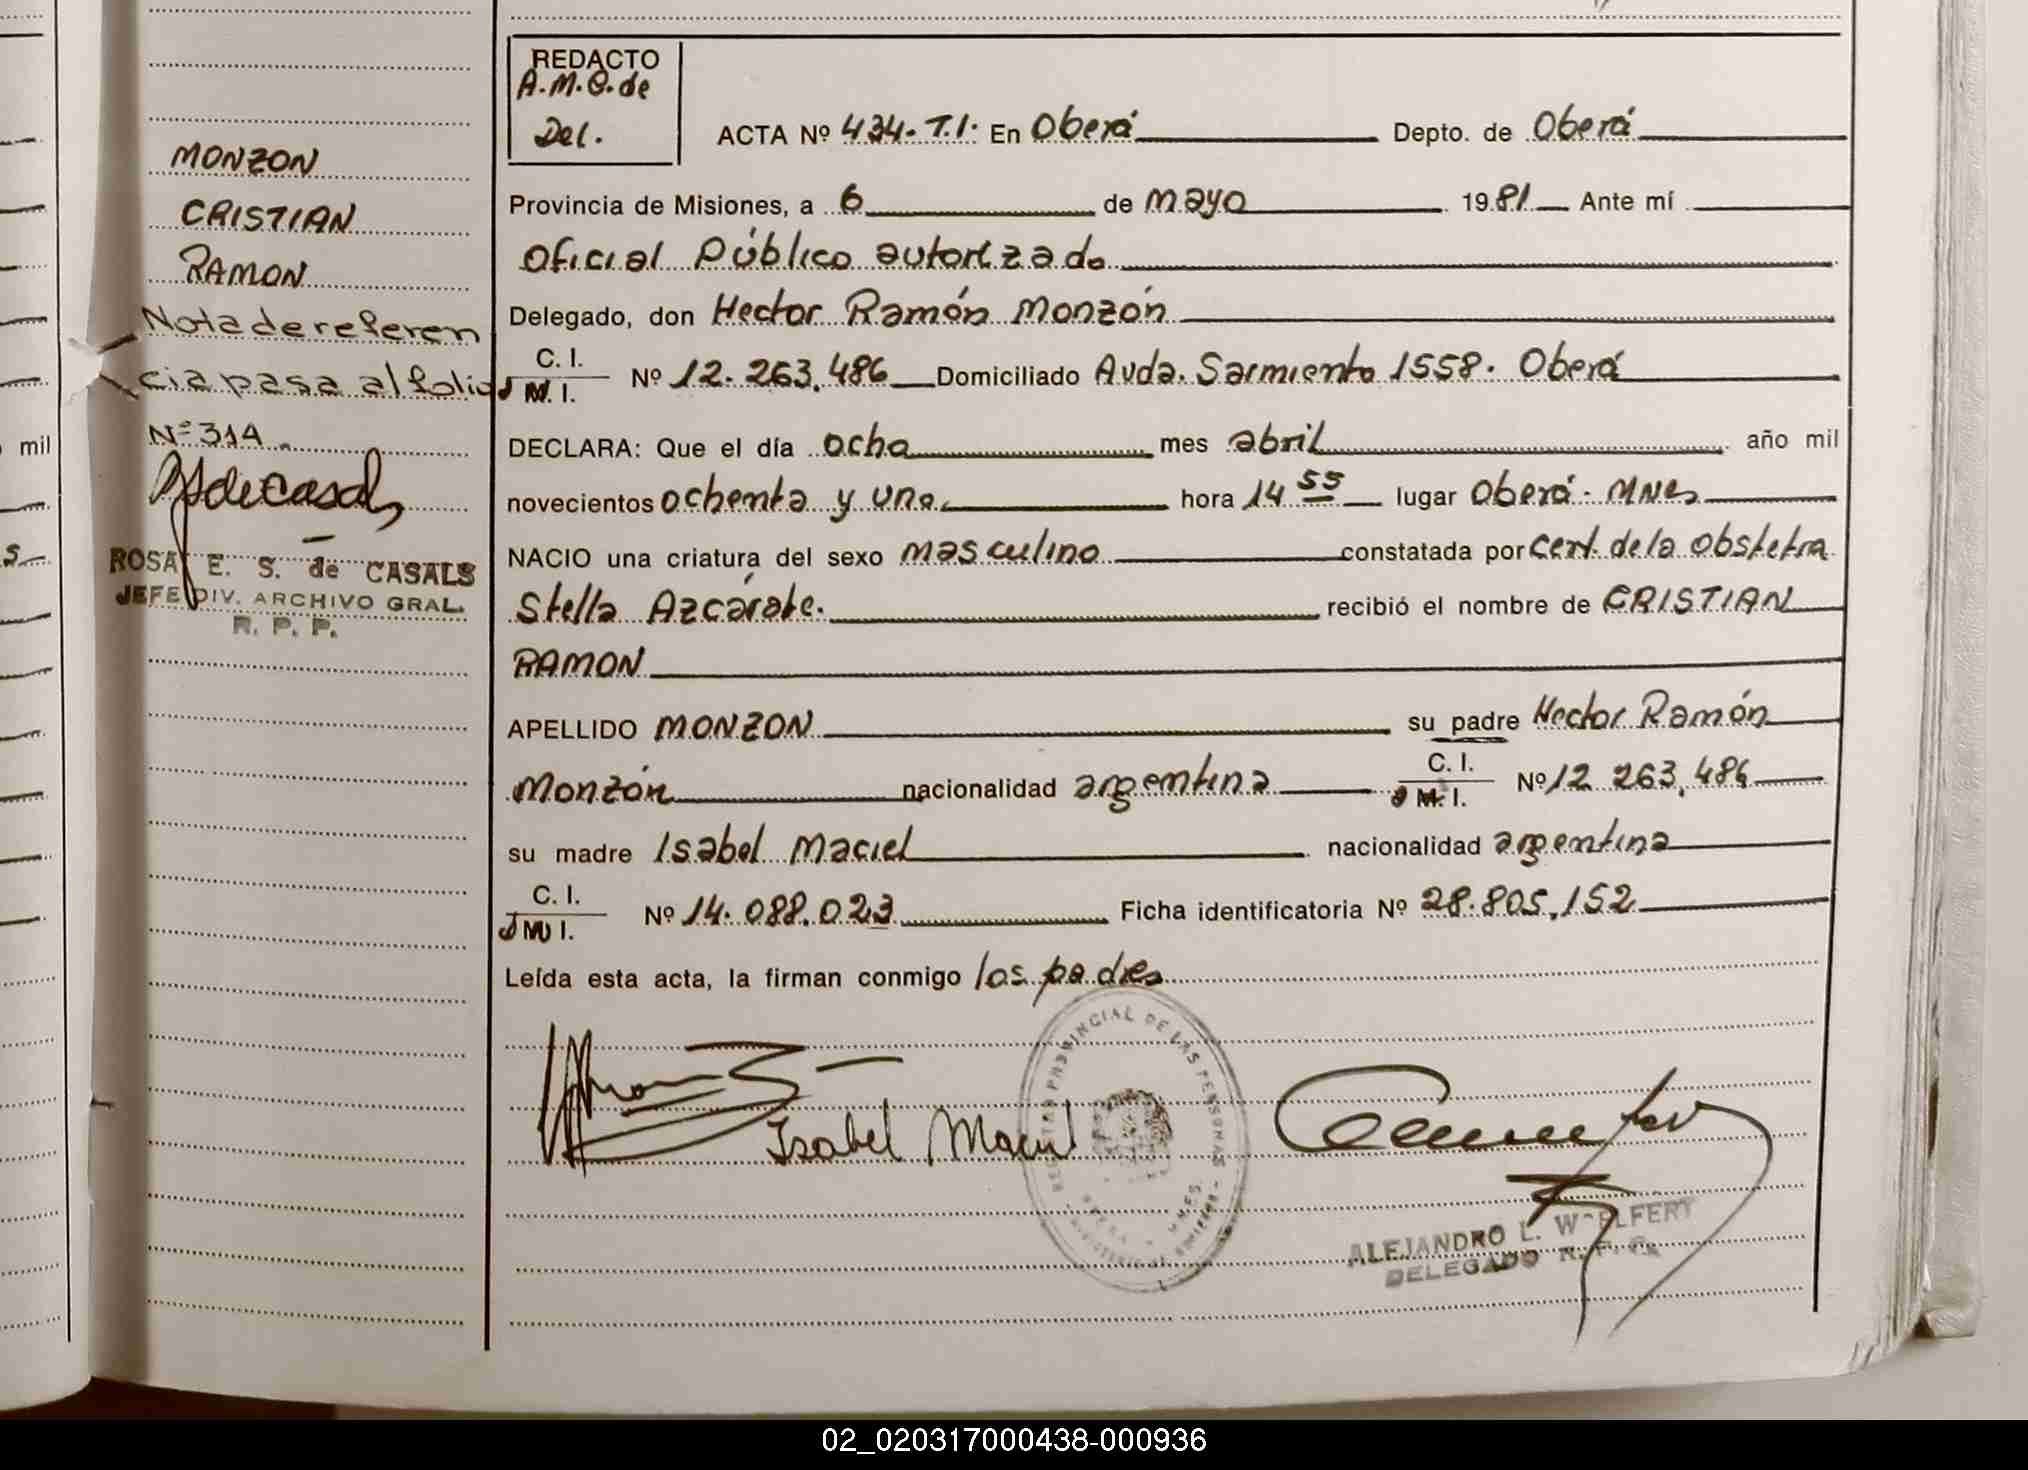 REDACTO
A.M.G. de
Del.
ACTA Nº 434-T.I. En Oberá Depto. de Oberá
Provincia de Misiones, a 6 de mayo 1981 Ante mí
Oficial Público autorizado
Delegado, don Hector Ramón Monzón
C. I.
M. I. Nº 12.263.486 Domiciliado Avda. Sarmiento 1558. Oberá
DECLARA: Que el día ocho mes abril año mil
novecientos ochenta y uno hora 14 55 lugar Oberá - Mnes
NACIO una criatura del sexo masculino constatada por Cert. de la Obstetra
Stella Azcárate. recibió el nombre de CRISTIAN
RAMON
APELLIDO MONZON su padre Hector Ramón
Monzón nacionalidad argentina C. I.
M. I. Nº 12 263.486
su madre Isabel Maciel nacionalidad argentina
C. I.
M. I. Nº 14.088.023 Ficha identificatoria Nº 28.805.152
Leída esta acta, la firman conmigo los padres
Isabel Maciel
REGISTRO PROVINCIAL DE LAS PERSONAS
ALEJANDRO L.
DELEGADO R. P.
MONZON
CRISTIAN
RAMON
Nota de referen
cia pasa al folio
Nº 314
ROSA E. S. de CASALS
JEFE DIV. ARCHIVO GRAL.
R. P. P.
mil
02_020317000438-000936